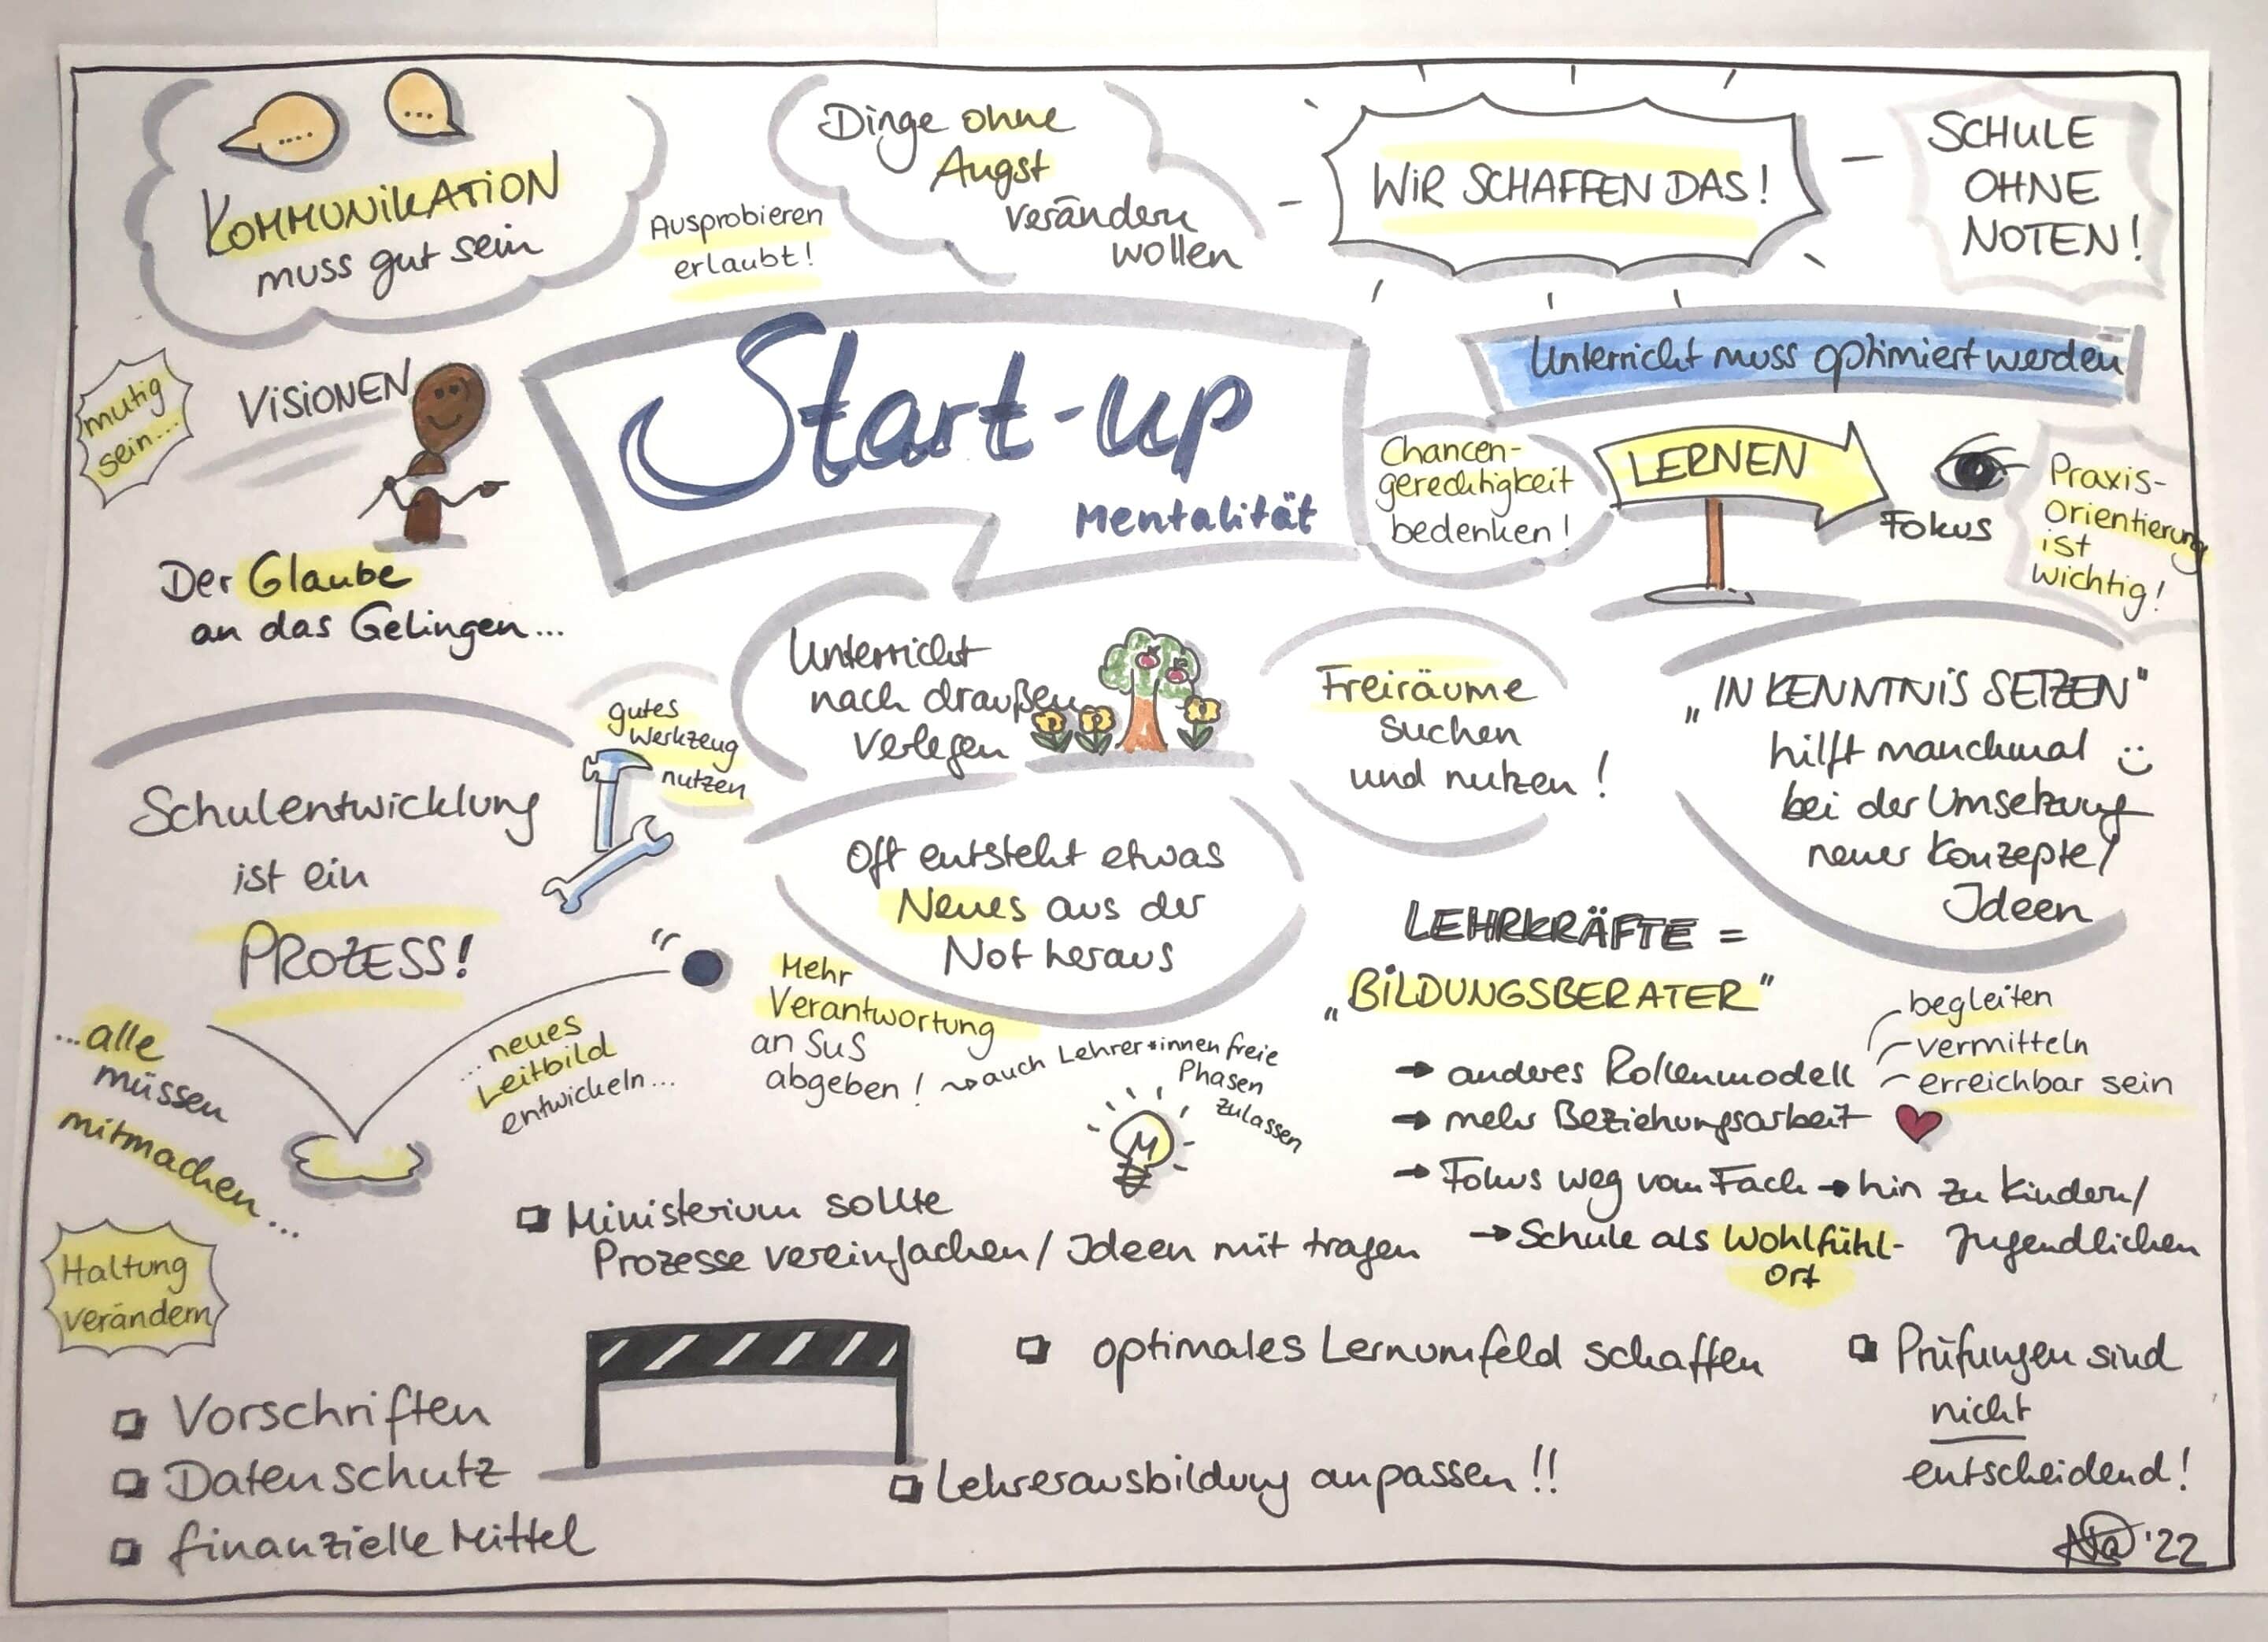 ....
...
KOMMUNIKATION
muss gut sein
Ausprobieren
erlaubt!
Dinge ohne
Angst
verändern
wollen
WIR SCHAFFEN DAS!
SCHULE
OHNE
NOTEN!
mutig
sein...
VISIONEN
Der Glaube
an das Gelingen...
Start-up
Mentalität
Unterricht muss optimiert werden
Chancen-
gerechtigkeit
bedenken!
LERNEN
Fokus
Praxis-
Orientierung
ist
wichtig!
Schulentwicklung
ist ein
PROZESS!
gutes
Werkzeug
nutzen
Unterricht
nach draußen
verlegen
Freiräume
suchen
und nutzen!
„IN KENNTNIS SETZEN"
hilft manchmal :)
bei der Umsetzung
neuer Konzepte/
Ideen
Oft entsteht etwas
Neues aus der
Not heraus
...alle
müssen
mitmachen...
...neues
Leitbild
entwickeln...
Mehr
Verantwortung
an SuS
abgeben! ⇝ auch Lehrer*innen freie
Phasen
zulassen
LEHRKRÄFTE =
„BILDUNGSBERATER"
→ anderes Rollenmodell
begleiten
vermitteln
erreichbar sein
→ mehr Beziehungsarbeit ♥
→ Fokus weg vom Fach → hin zu Kindern/
Jugendlichen
→ Schule als Wohlfühl-
Ort
Haltung
verändern
□ Ministerium sollte
Prozesse vereinfachen/ Ideen mit tragen
□ Vorschriften
□ Datenschutz
□ finanzielle Mittel
□ optimales Lernumfeld schaffen
□ Lehrerausbildung anpassen!!
□ Prüfungen sind
nicht
entscheidend!
'22